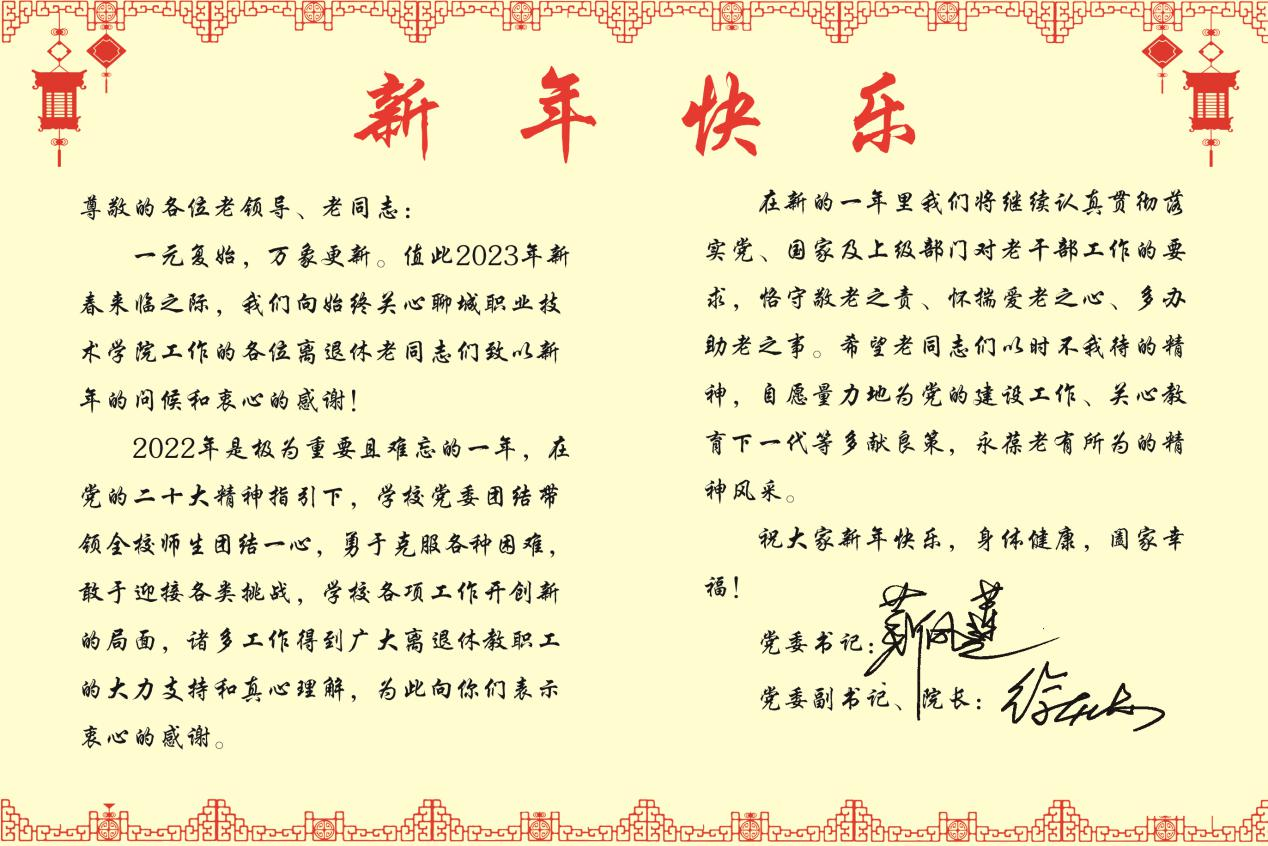 新年快乐
尊敬的各位老领导、老同志：
一元复始，万象更新。值此2023年新
春来临之际，我们向始终关心聊城职业技
术学院工作的各位离退休老同志们致以新
年的问候和衷心的感谢！
2022年是极为重要且难忘的一年，在
党的二十大精神指引下，学校党委团结带
领全校师生团结一心，勇于克服各种困难，
敢于迎接各类挑战，学校各项工作开创新
的局面，诸多工作得到广大离退休教职工
的大力支持和真心理解，为此向你们表示
衷心的感谢。
在新的一年里我们将继续认真贯彻落
实党、国家及上级部门对老干部工作的要
求，恪守敬老之责、怀揣爱老之心、多办
助老之事。希望老同志们以时不我待的精
神，自愿量力地为党的建设工作、关心教
育下一代等多献良策，永葆老有所为的精
神风采。
祝大家新年快乐，身体健康，阖家幸
福！
党委书记：
党委副书记、院长：